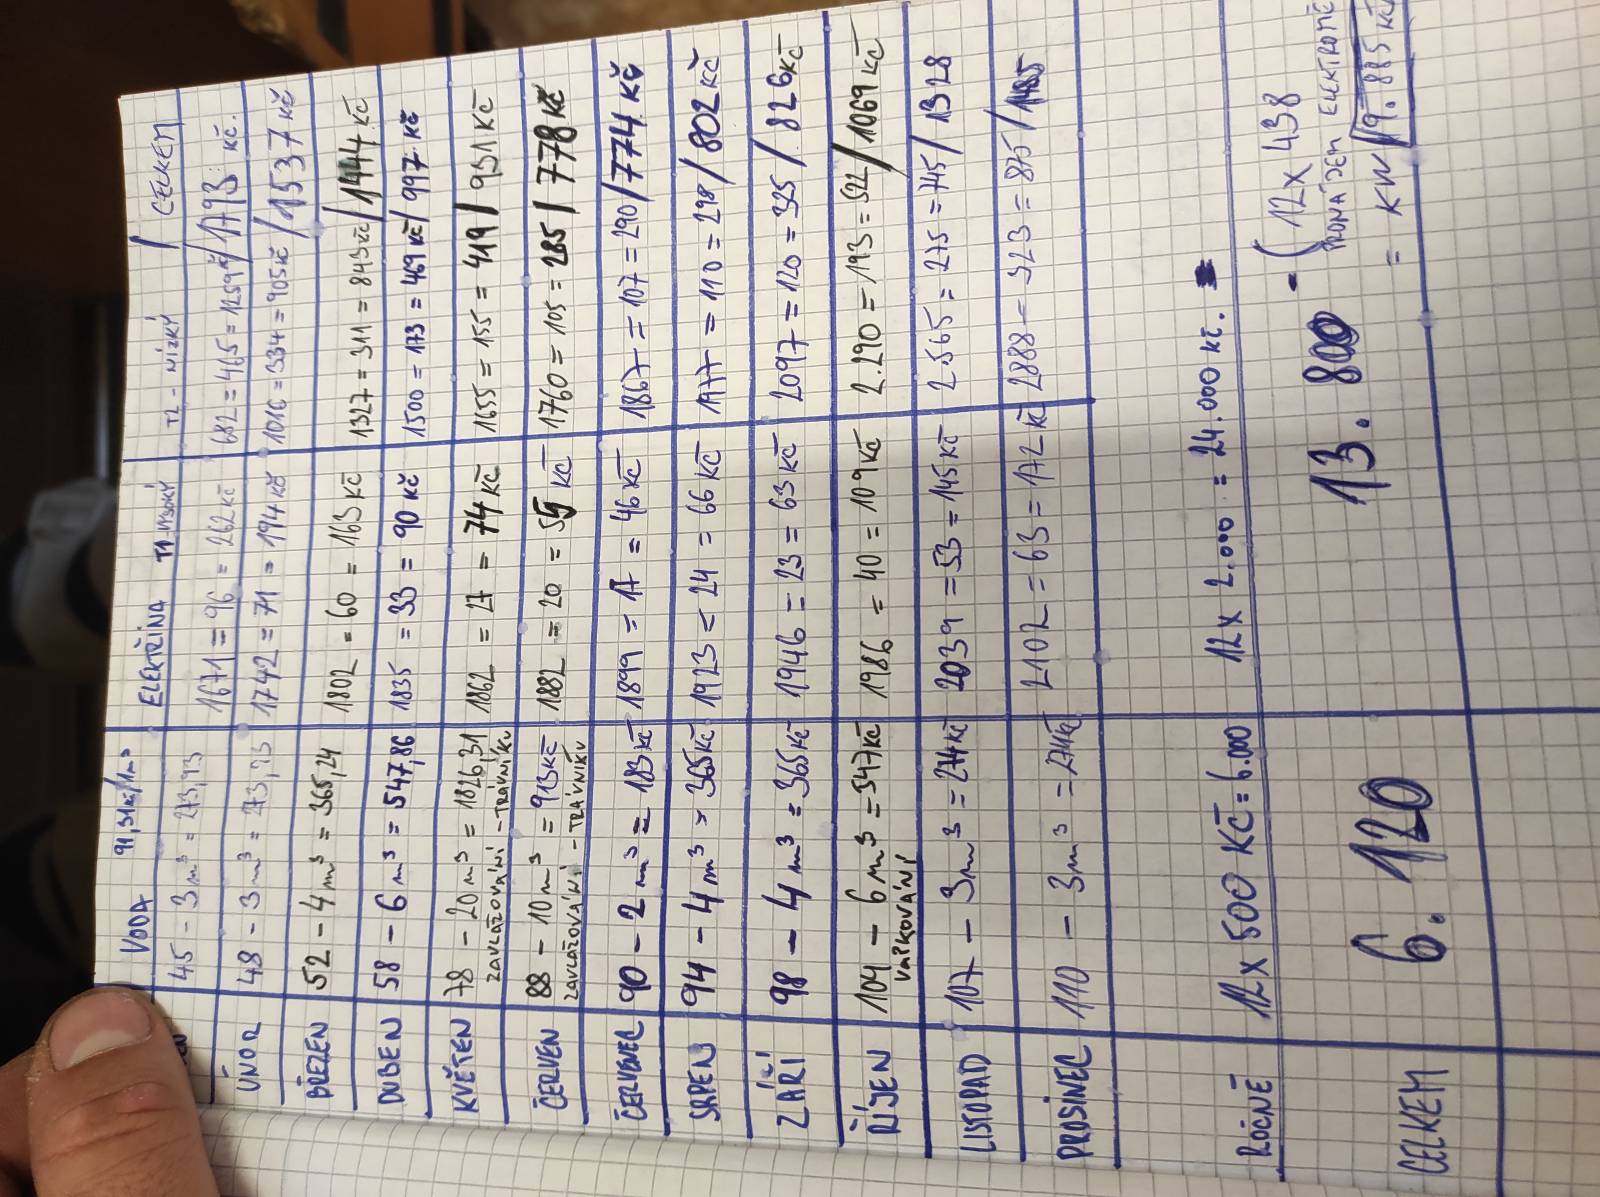 VODA 91,31Kč/1m³ ELEKTŘINA T1 VYSOKÝ T2 - NÍZKÝ / CELKEM
45 - 3m³ = 273,93 1671 = 96 = 262Kč 682 = 465 = 1259Kč / 1793 Kč.
ÚNOR 48 - 3m³ = 273,93 1742 = 71 = 194Kč 1016 = 334 = 905Kč / 1537 Kč
BŘEZEN 52 - 4m³ = 365,24 1802 = 60 = 163Kč 1327 = 311 = 843Kč / 1444 Kč
DUBEN 58 - 6m³ = 547,86 1835 = 33 = 90Kč 1500 = 173 = 469 Kč / 997 Kč
KVĚTEN 78 - 20m³ = 1826,31 1862 = 27 = 74Kč 1655 = 155 = 419 / 931 Kč
ZAVLAŽOVÁNÍ - TRÁVNÍKU
ČERVEN 88 - 10m³ = 913Kč 1882 = 20 = 55 Kč 1760 = 105 = 285 / 778 Kč
ZAVLAŽOVÁNÍ - TRÁVNÍKU
ČERVENEC 90 - 2m³ = 183Kč 1899 = 17 = 46Kč 1867 = 107 = 290 / 774 Kč
SRPEN 94 - 4m³ = 365Kč 1923 = 24 = 66Kč 1977 = 110 = 298 / 802Kč
ZÁŘÍ 98 - 4m³ = 365Kč 1946 = 23 = 63Kč 2097 = 120 = 325 / 826Kč
ŘÍJEN 104 - 6m³ = 547Kč 1986 = 40 = 109Kč 2.290 = 193 = 522 / 1069 Kč
VAPKOVÁNÍ
LISTOPAD 107 - 3m³ = 274Kč 2039 = 53 = 145Kč 2.565 = 275 = 745 / 1328
PROSINEC 110 - 3m³ = 274Kč 2102 = 63 = 172 Kč 2888 - 323 = 875 / 1485
ROČNĚ 12x 500 KČ = 6.000 12x 2.000 = 24.000 Kč.
CELKEM 6.120 13.800 - (12x 438
PRONÁJEM
= KW 9.885 Kč